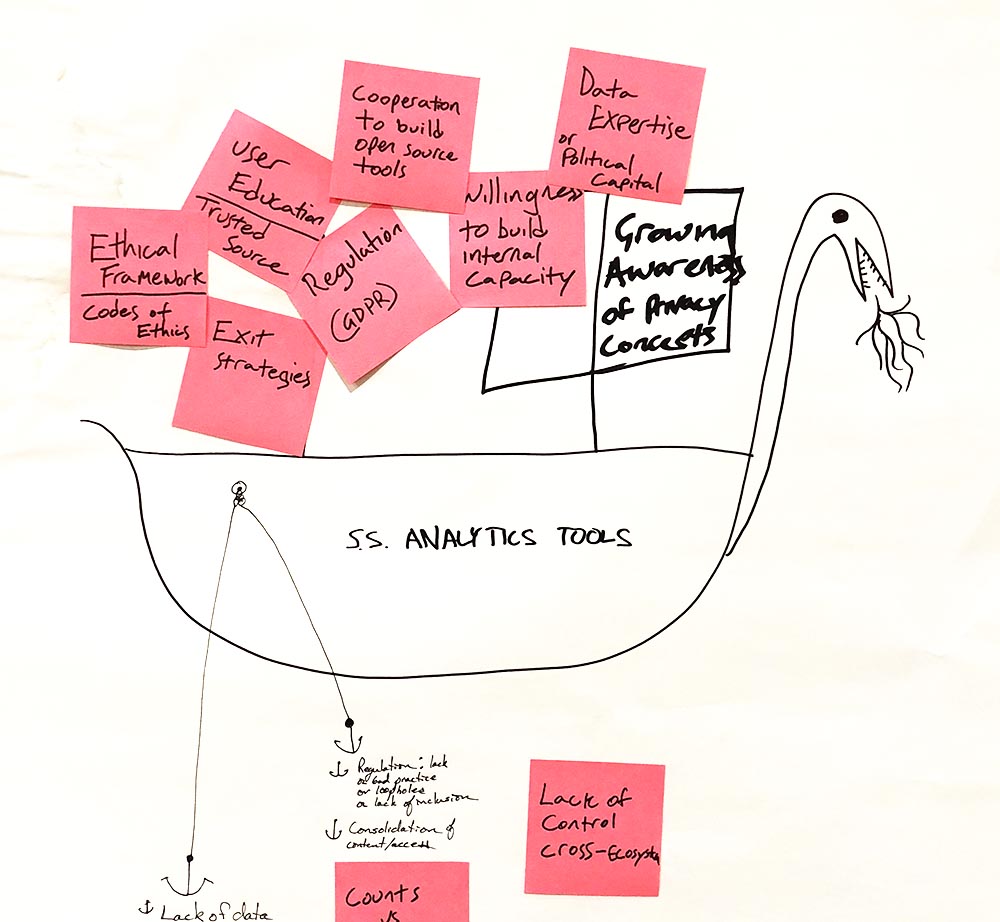 Cooperation
to build
open source
tools
Data
Expertise
or
Political
Capital
User
Education
Trusted
Source
Willingness
to build
internal
capacity
Ethical
Framework
Codes of
Ethics
Regulation
(GDPR)
Growing
Awareness
of Privacy
Concepts
Exit
strategies
S.S. ANALYTICS TOOLS
Regulation: lack
or bad practice
or loopholes
or lack of inclusion
Consolidation of
content/access
Lack of
Control
cross-Ecosystem
Counts
vs
Lack of data